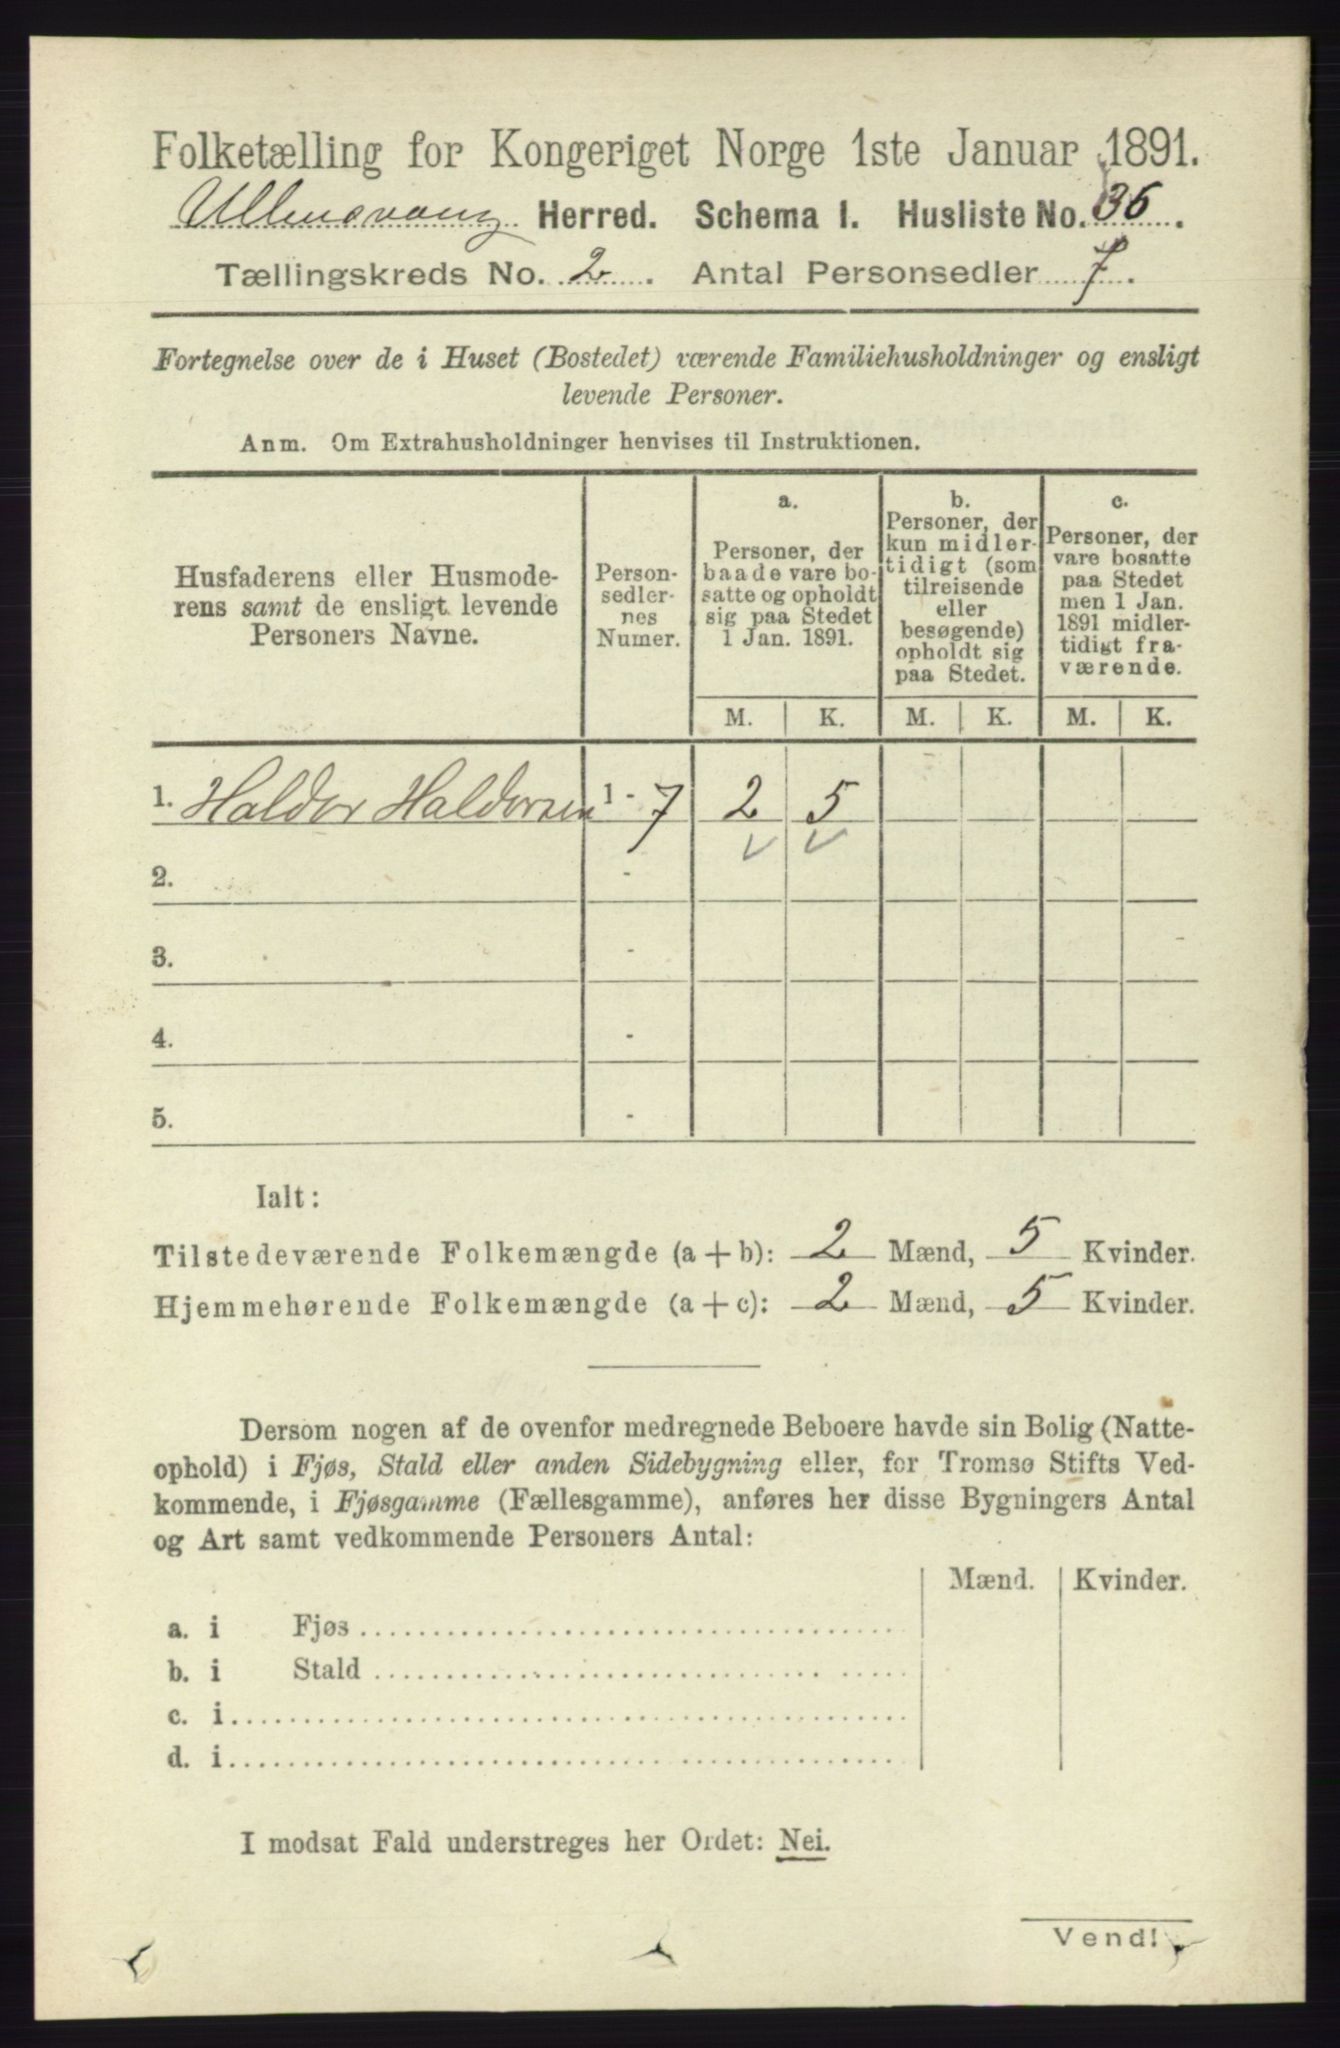 Folketælling for Kongeriget Norge 1ste Januar 1891.
Ullensvang Herred. Schema 1. Husliste No. 36.
Tællingskreds No. 2. Antal Personsedler 7.
Fortegnelse over de i Huset (Bostedet) værende Familiehusholdninger og ensligt
levende Personer.
Anm. Om Extrahusholdninger henvises til Instruktionen.
Husfaderens eller Husmode-
rens samt de ensligt levende
Personers Navne.
Person-
sedler-
nes
Numer.
a.
Personer, der
baade vare bo-
satte og opholdt
sig paa Stedet
1 Jan. 1891.
b.
Personer, der
kun midler-
tidigt (som
tilreisende
eller
besøgende)
opholdt sig
paa Stedet.
c.
Personer, der
vare bosatte
paa Stedet
men 1 Jan.
1891 midler-
tidigt fra-
værende.
M. K. M. K. M. K.
1. Haldor Haldorsen 1 - 7 2 5
2. -
3. -
4. -
5. -
Ialt:
Tilstedeværende Folkemængde (a + b): 2 Mænd, 5 Kvinder.
Hjemmehørende Folkemængde (a + c): 2 Mænd, 5 Kvinder.
Dersom nogen af de ovenfor medregnede Beboere havde sin Bolig (Natte-
ophold) i Fjøs, Stald eller anden Sidebygning eller, for Tromsø Stifts Ved-
kommende, i Fjøsgamme (Fællesgamme), anføres her disse Bygningers Antal
og Art samt vedkommende Personers Antal:
Mænd. Kvinder.
a. i Fjøs
b. i Stald
c. i
d. i
I modsat Fald understreges her Ordet: Nei.
Vend!